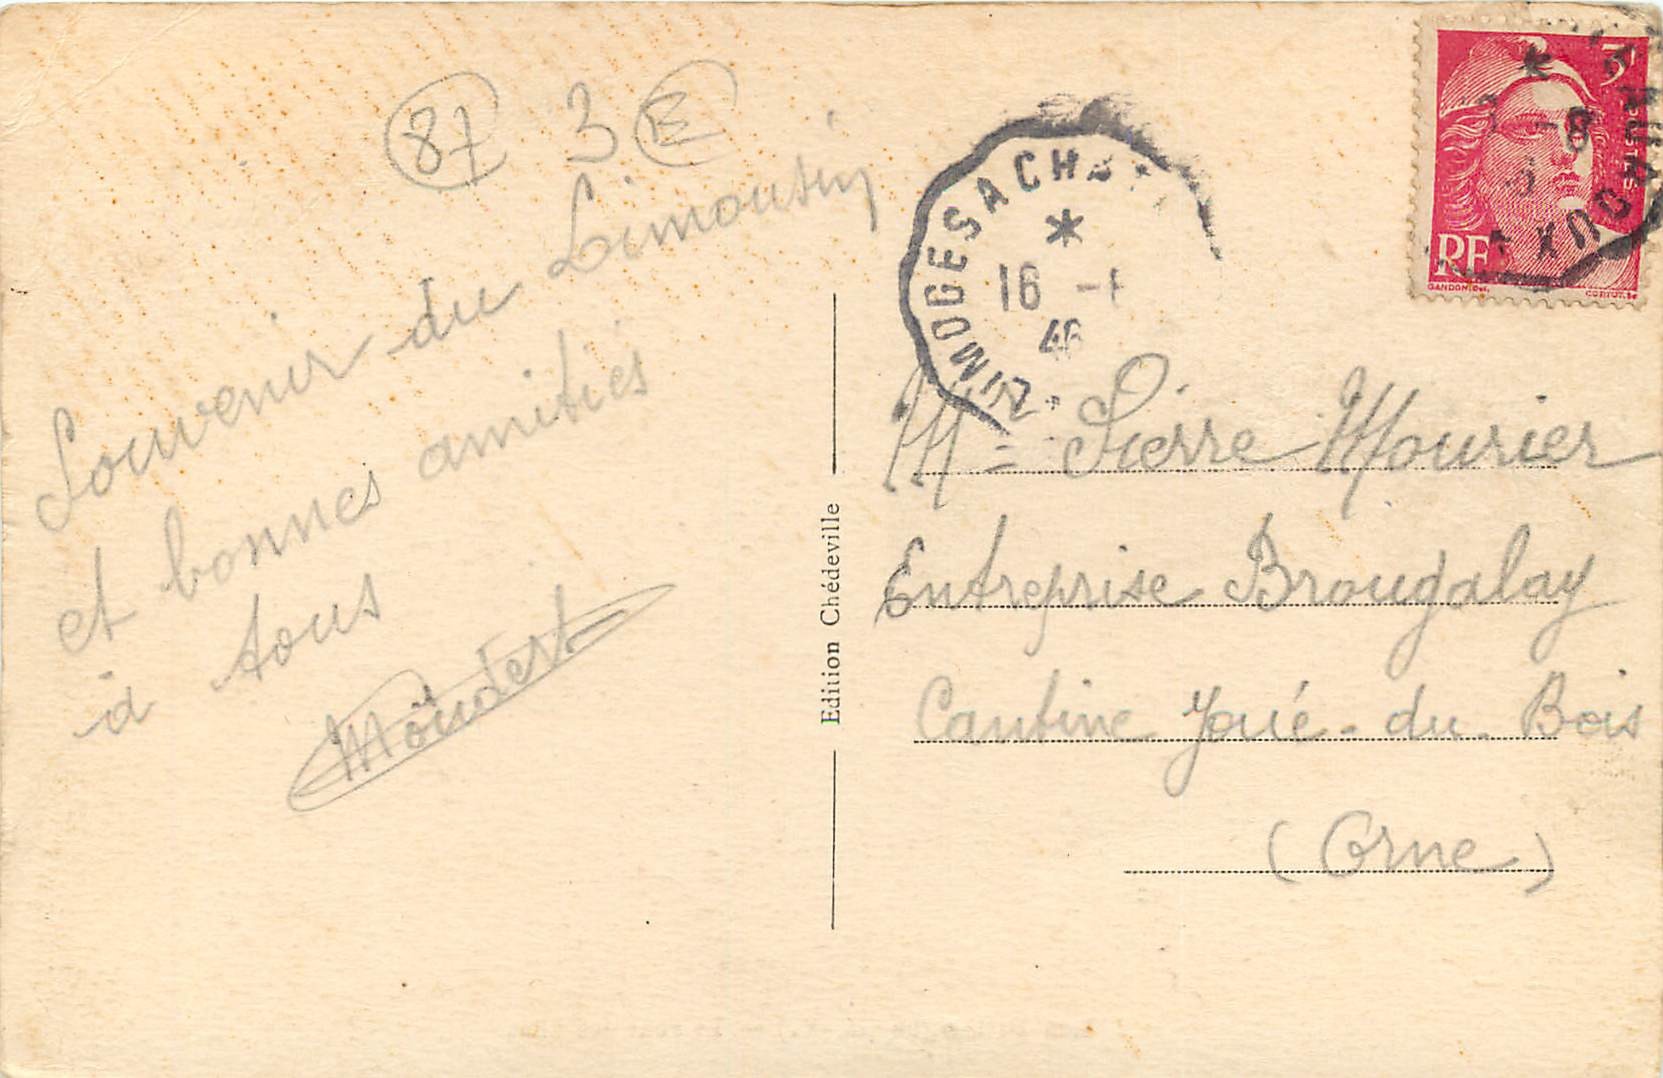 87 3 E
Souvenir du Limousin
et bonnes amitiés
à tous
Edition Chédeville
LIMOGES A CH
16 -
46
3F
POSTES
RF
GANDON. Del.
CORTOT. Sc
Mr Pierre Mourier
Entreprise Brougalay
Cantine Joué-du-Bois
(Orne)